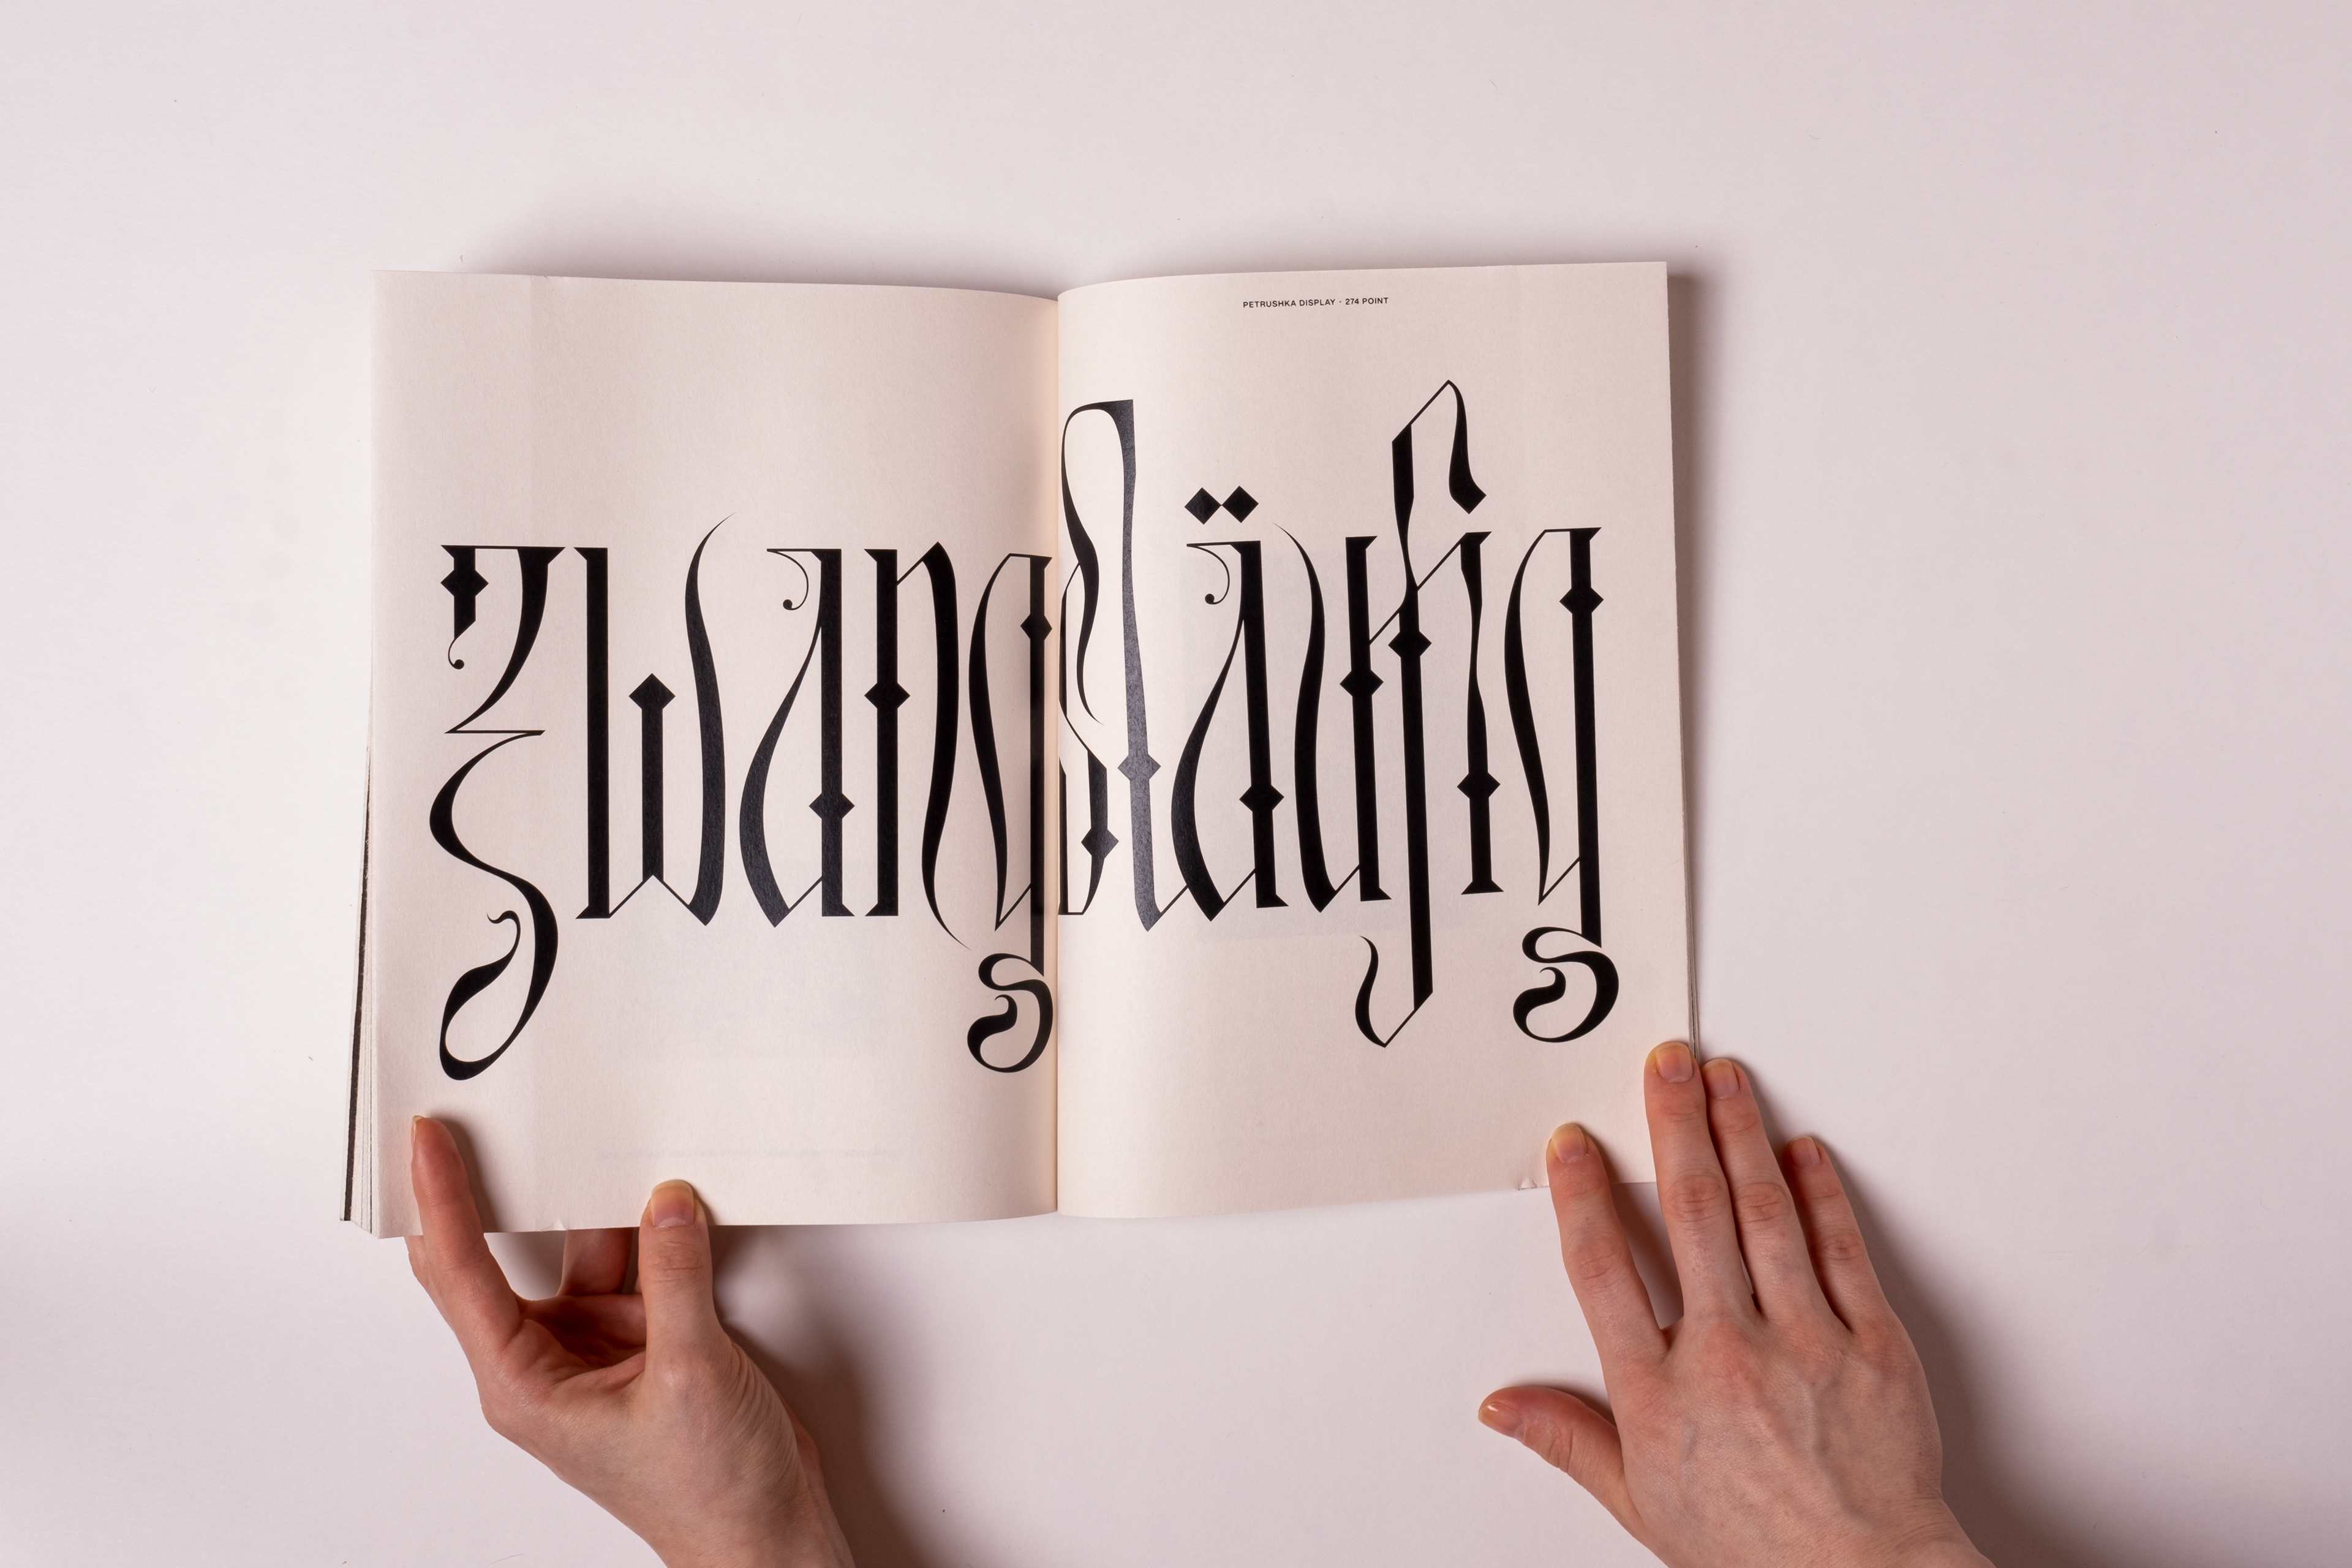 PETRUSHKA DISPLAY · 274 POINT
zwangsläufig